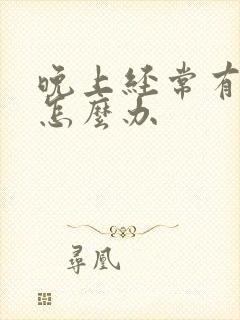 晚上經常有
怎麼办
尋凰